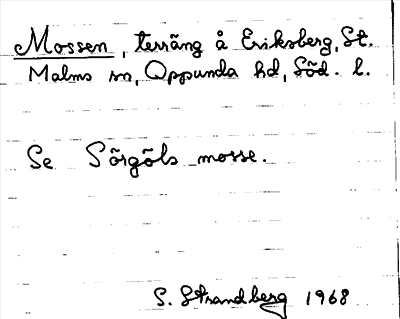 Mossen, terräng å Eriksberg, St.
Malms sn, Oppunda hd, Söd. l.
Se Sörgöls mosse.
S. Strandberg 1968